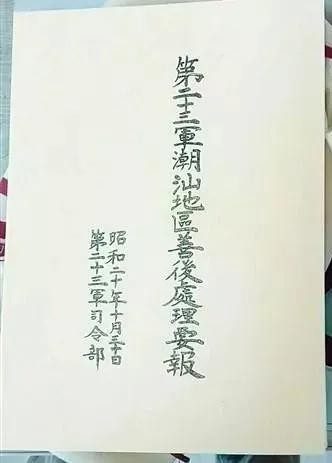 第二十三軍潮汕地區善後處理要報
昭和二十年十月三十日
第二十三軍司令部